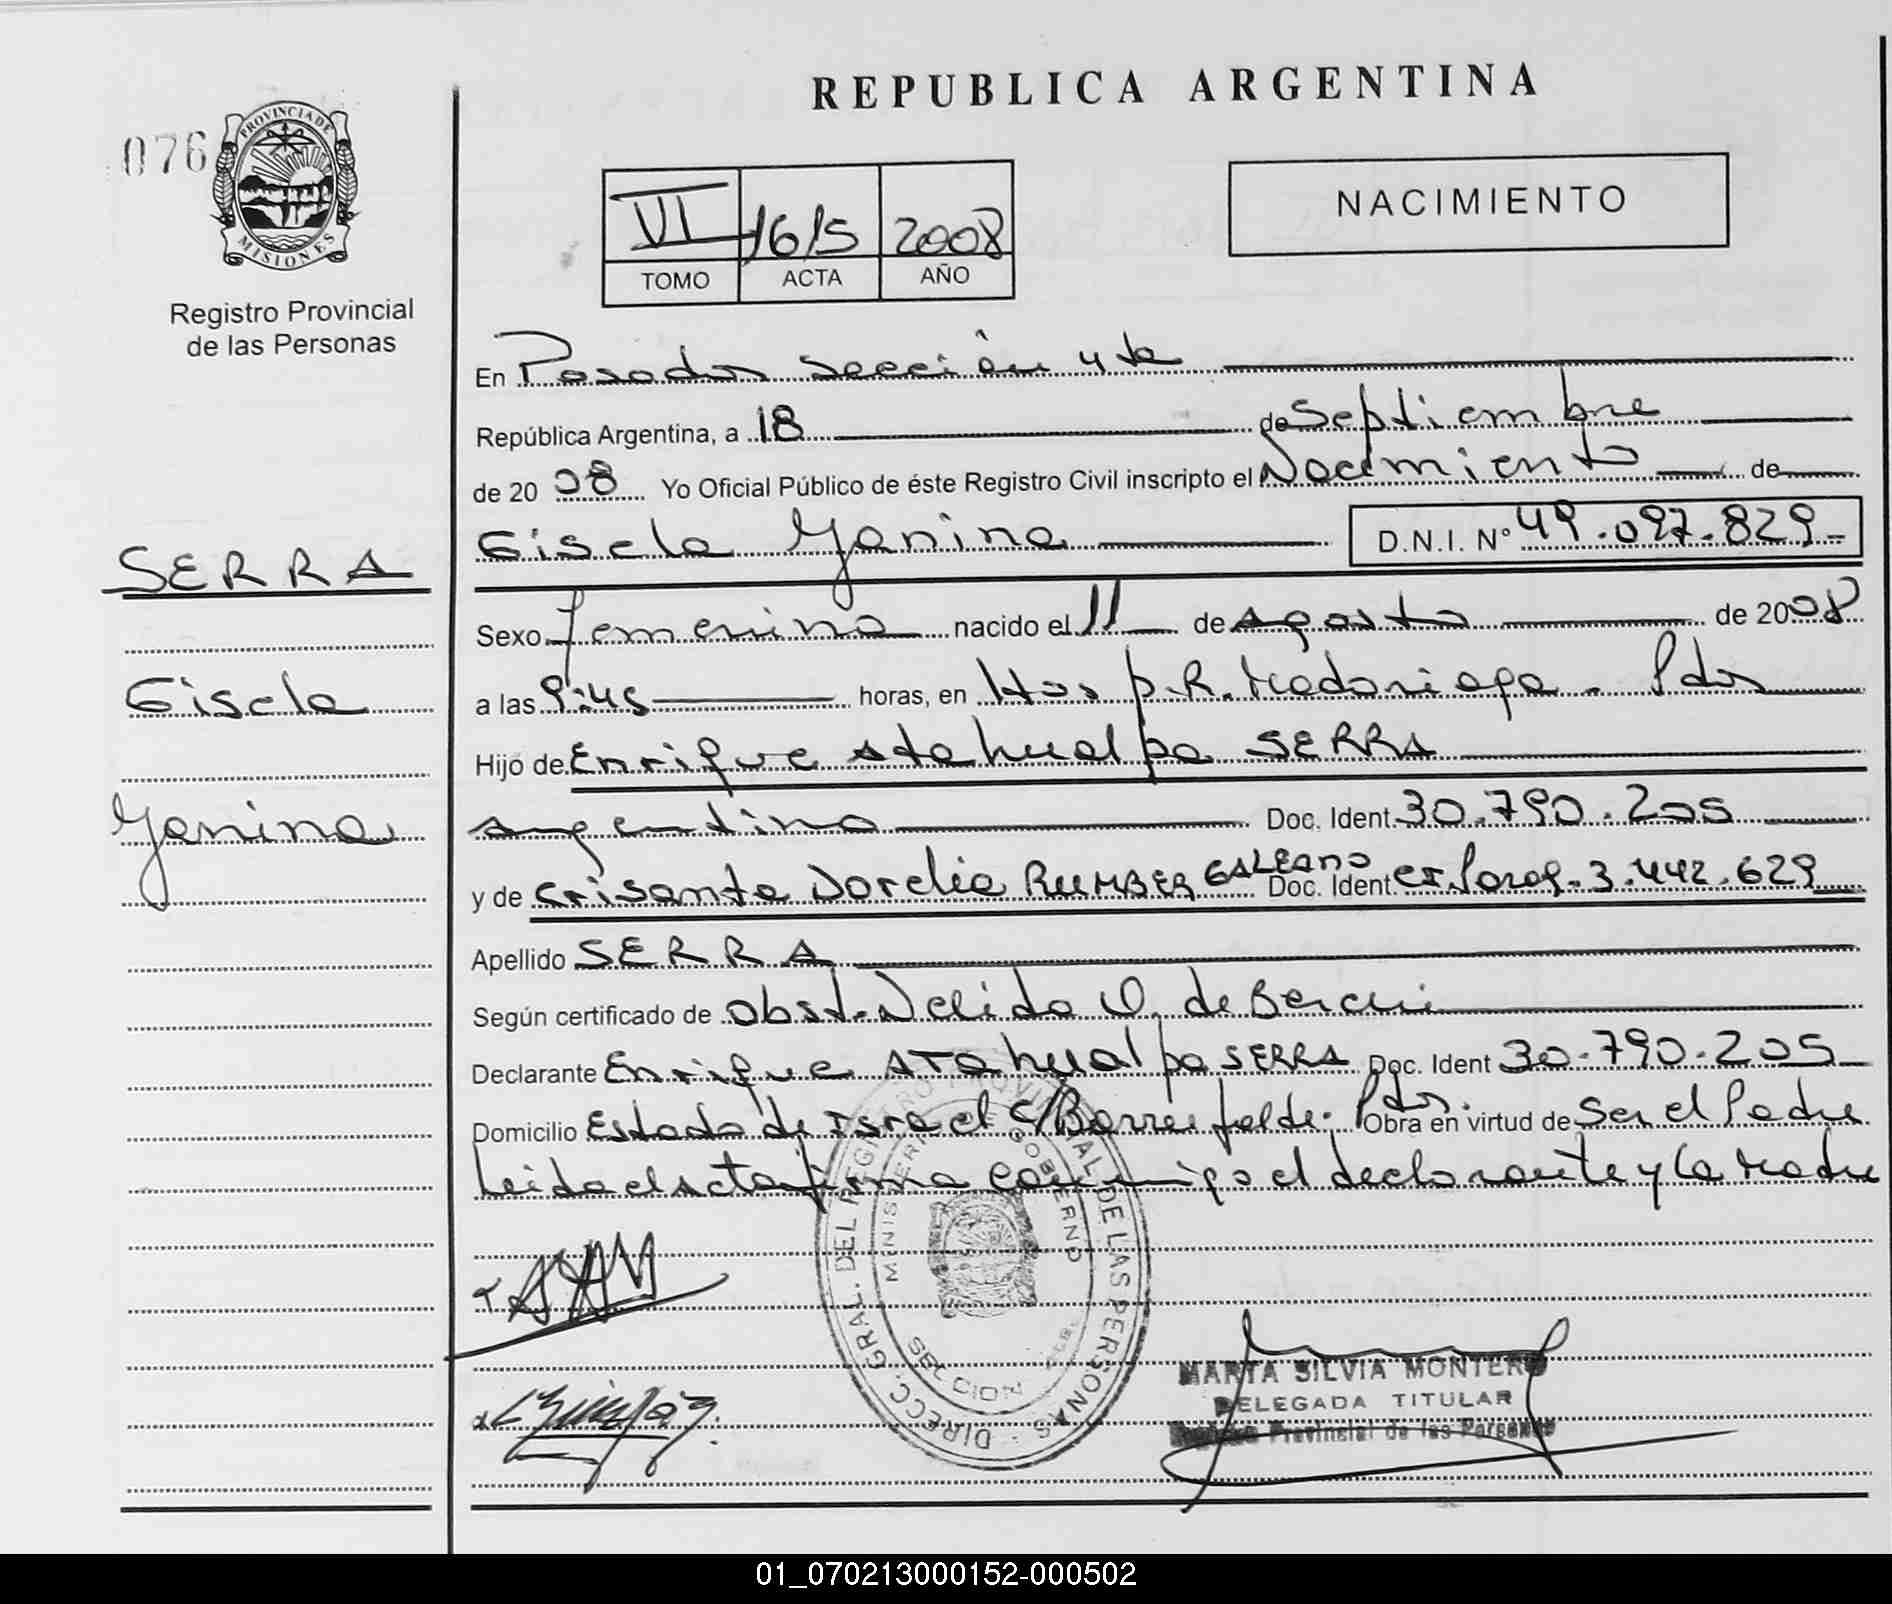 REPUBLICA ARGENTINA
076
PROVINCIA DE MISIONES
Registro Provincial
de las Personas
VI 1615 2008
TOMO ACTA AÑO
NACIMIENTO
En Posadas Sección 4ta
República Argentina, a 18 de Septiembre
de 2008 Yo Oficial Público de éste Registro Civil inscripto el Nacimiento de
Gisela Yanina D.N.I. N° 49.097.829-
SERRA
Gisela
Yanina
Sexo femenino nacido el 11 de Agosto de 2008
a las 9:45 horas, en Hosp. R. Madariaga - Pdas
Hijo de Enrique Atahualpa SERRA
Argentino Doc. Ident. 30.790.205
y de Crisanta Dorelia RUMBER GALEANO Doc. Ident. CI. Parag. 3.442.629
Apellido SERRA
Según certificado de Obst. Nelida de
Declarante Enrique Atahualpa SERRA Doc. Ident 30.790.205
Domicilio Estado de Israel c/ Pdas. Obra en virtud de Ser el Padre
Leida el acta firma conmigo el declarante y la Madre
DIRECC. GRAL. DEL REGISTRO PROVINCIAL DE LAS PERSONAS
MINISTERIO GOBIERNO
SECCION
MARTA SILVIA MONTERO
DELEGADA TITULAR
Registro Provincial de las Personas
01_070213000152-000502